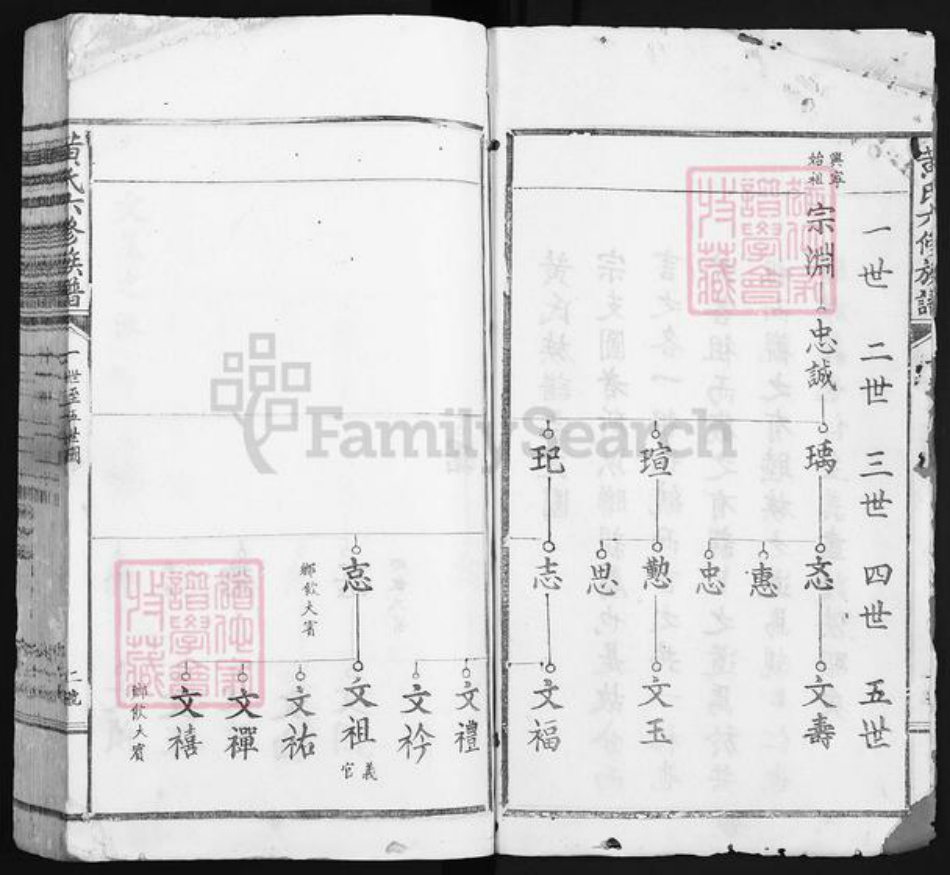 黃氏六修族譜
一世
二世
三世
四世
五世
興寧
始祖
宗淵
忠誠
瑀
瑄
玘
惠
忠
懃
思
志
文壽
文玉
文福
黃氏六修族譜
一世至五世圖
二號
鄉飲大賓
文禮
文衿
文祖
義官
文祐
文禪
文禧
鄉飲大賓
譜學會
收藏
譜學會
收藏
FamilySearch